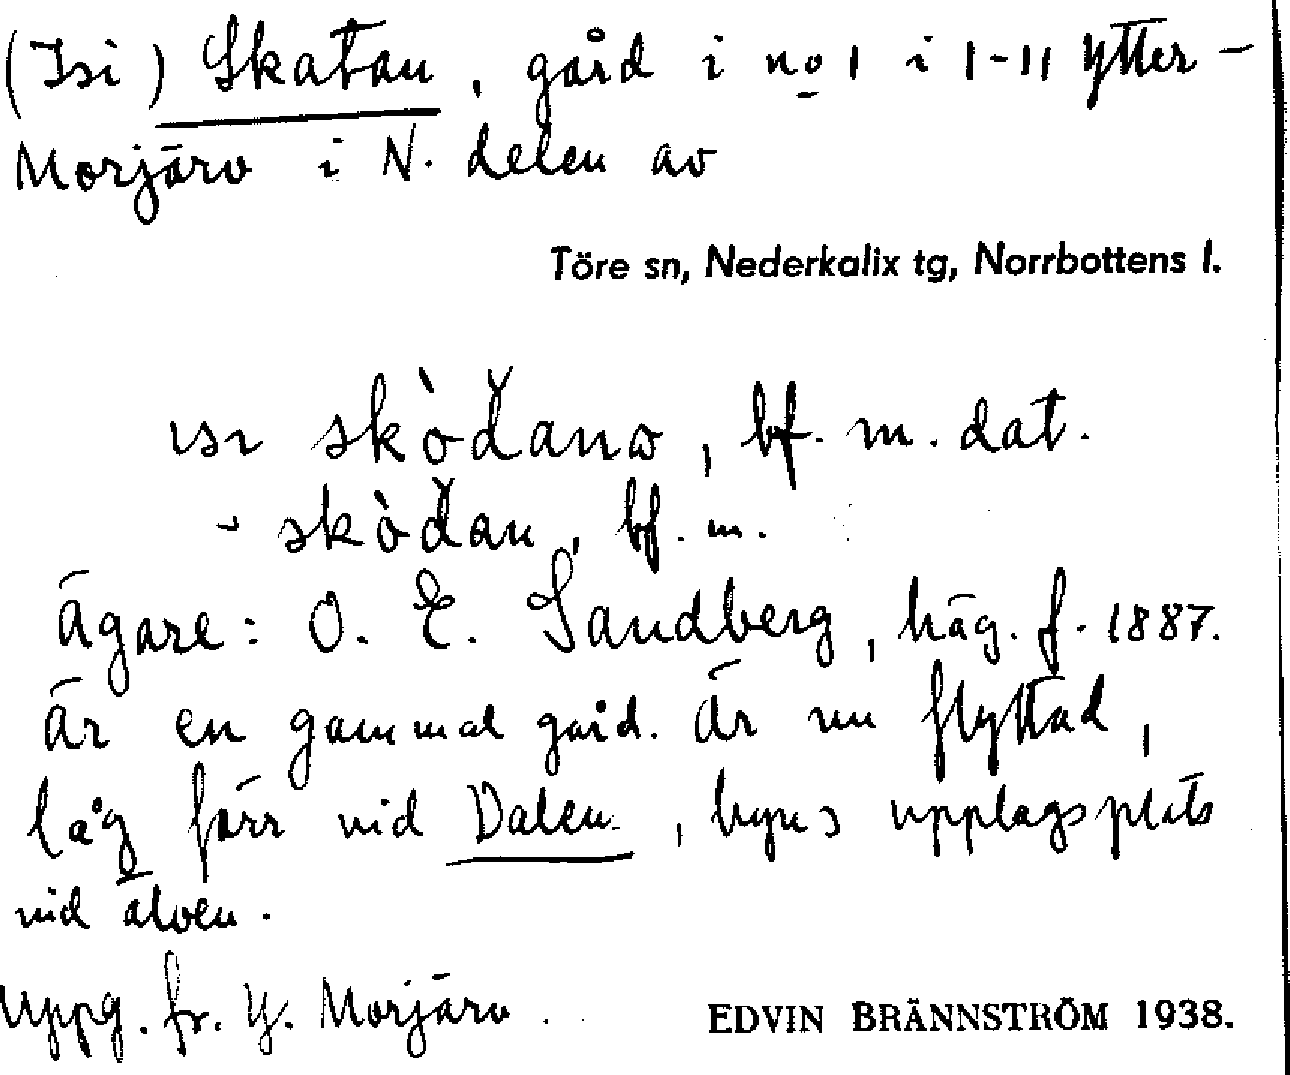 (Isi) Skatan, gård i no 1 i 1-11 Ytter-
Morjärv i N. delen av
Töre sn, Nederkalix tg, Norrbottens l.
ɪsɪ skòd̆anɷ, bf. m. dat.
- skòd̆an, bf. m.
Ägare: O. E. Sandberg, häg. f. 1887.
Är en gammal gård. Är nu flyttad,
låg förr vid Dalen, byns upplagsplats
vid älven.
Uppg. fr. Y. Morjärv.
EDVIN BRÄNNSTRÖM 1938.